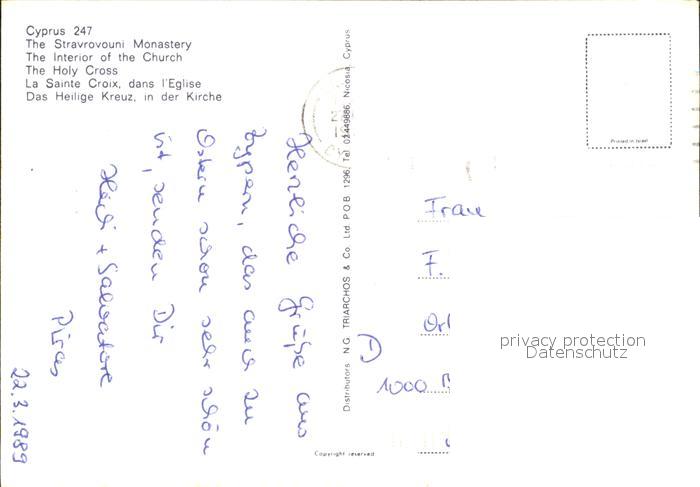 Cyprus 247
The Stravrovouni Monastery
The Interior of the Church
The Holy Cross
La Sainte Croix, dans l'Eglise
Das Heilige Kreuz, in der Kirche
Herzliche Grüße aus
Zypern, das auch zu
Ostern schon sehr schön
ist, senden Dir
Heidi + Salvatore
Piras
22.3.1989
Distributors N.G. TRIARCHOS & Co. Ltd. P.O.B. 1296, Tel. 02449886, Nicosia, Cyprus
Copyright reserved
Printed in Israel
Frau
F.
Ort
D
1000 B
privacy protection
Datenschutz